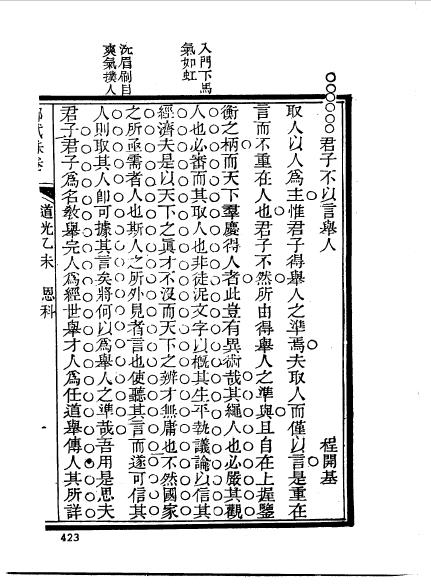 君子不以言舉人
程開基
取人以人為主惟君子得舉人之準焉夫取人而僅以言是重在
言而不重在人也君子不然所由得舉人之準與且自在上握鑒
衡之柄而天下羣慶得人者此豈有異術哉其繩人也必嚴其觀
人也必審而其取人也非徒泥文字以概其生平執議論以信其
經濟夫是以天下之眞才不沒而天下之辨才無庸也不然國家
之所亟需者人也斯人之所外見者言也使聽其言而遂可信其
人則取其人卽可據其言矣將何以為舉人之準哉吾用是思夫
君子君子為名教舉完人為經世舉才人為任道舉傳人其所詳
入門下馬
氣如虹
沉眉刷目
爽氣撲人
道光乙未
恩科
423